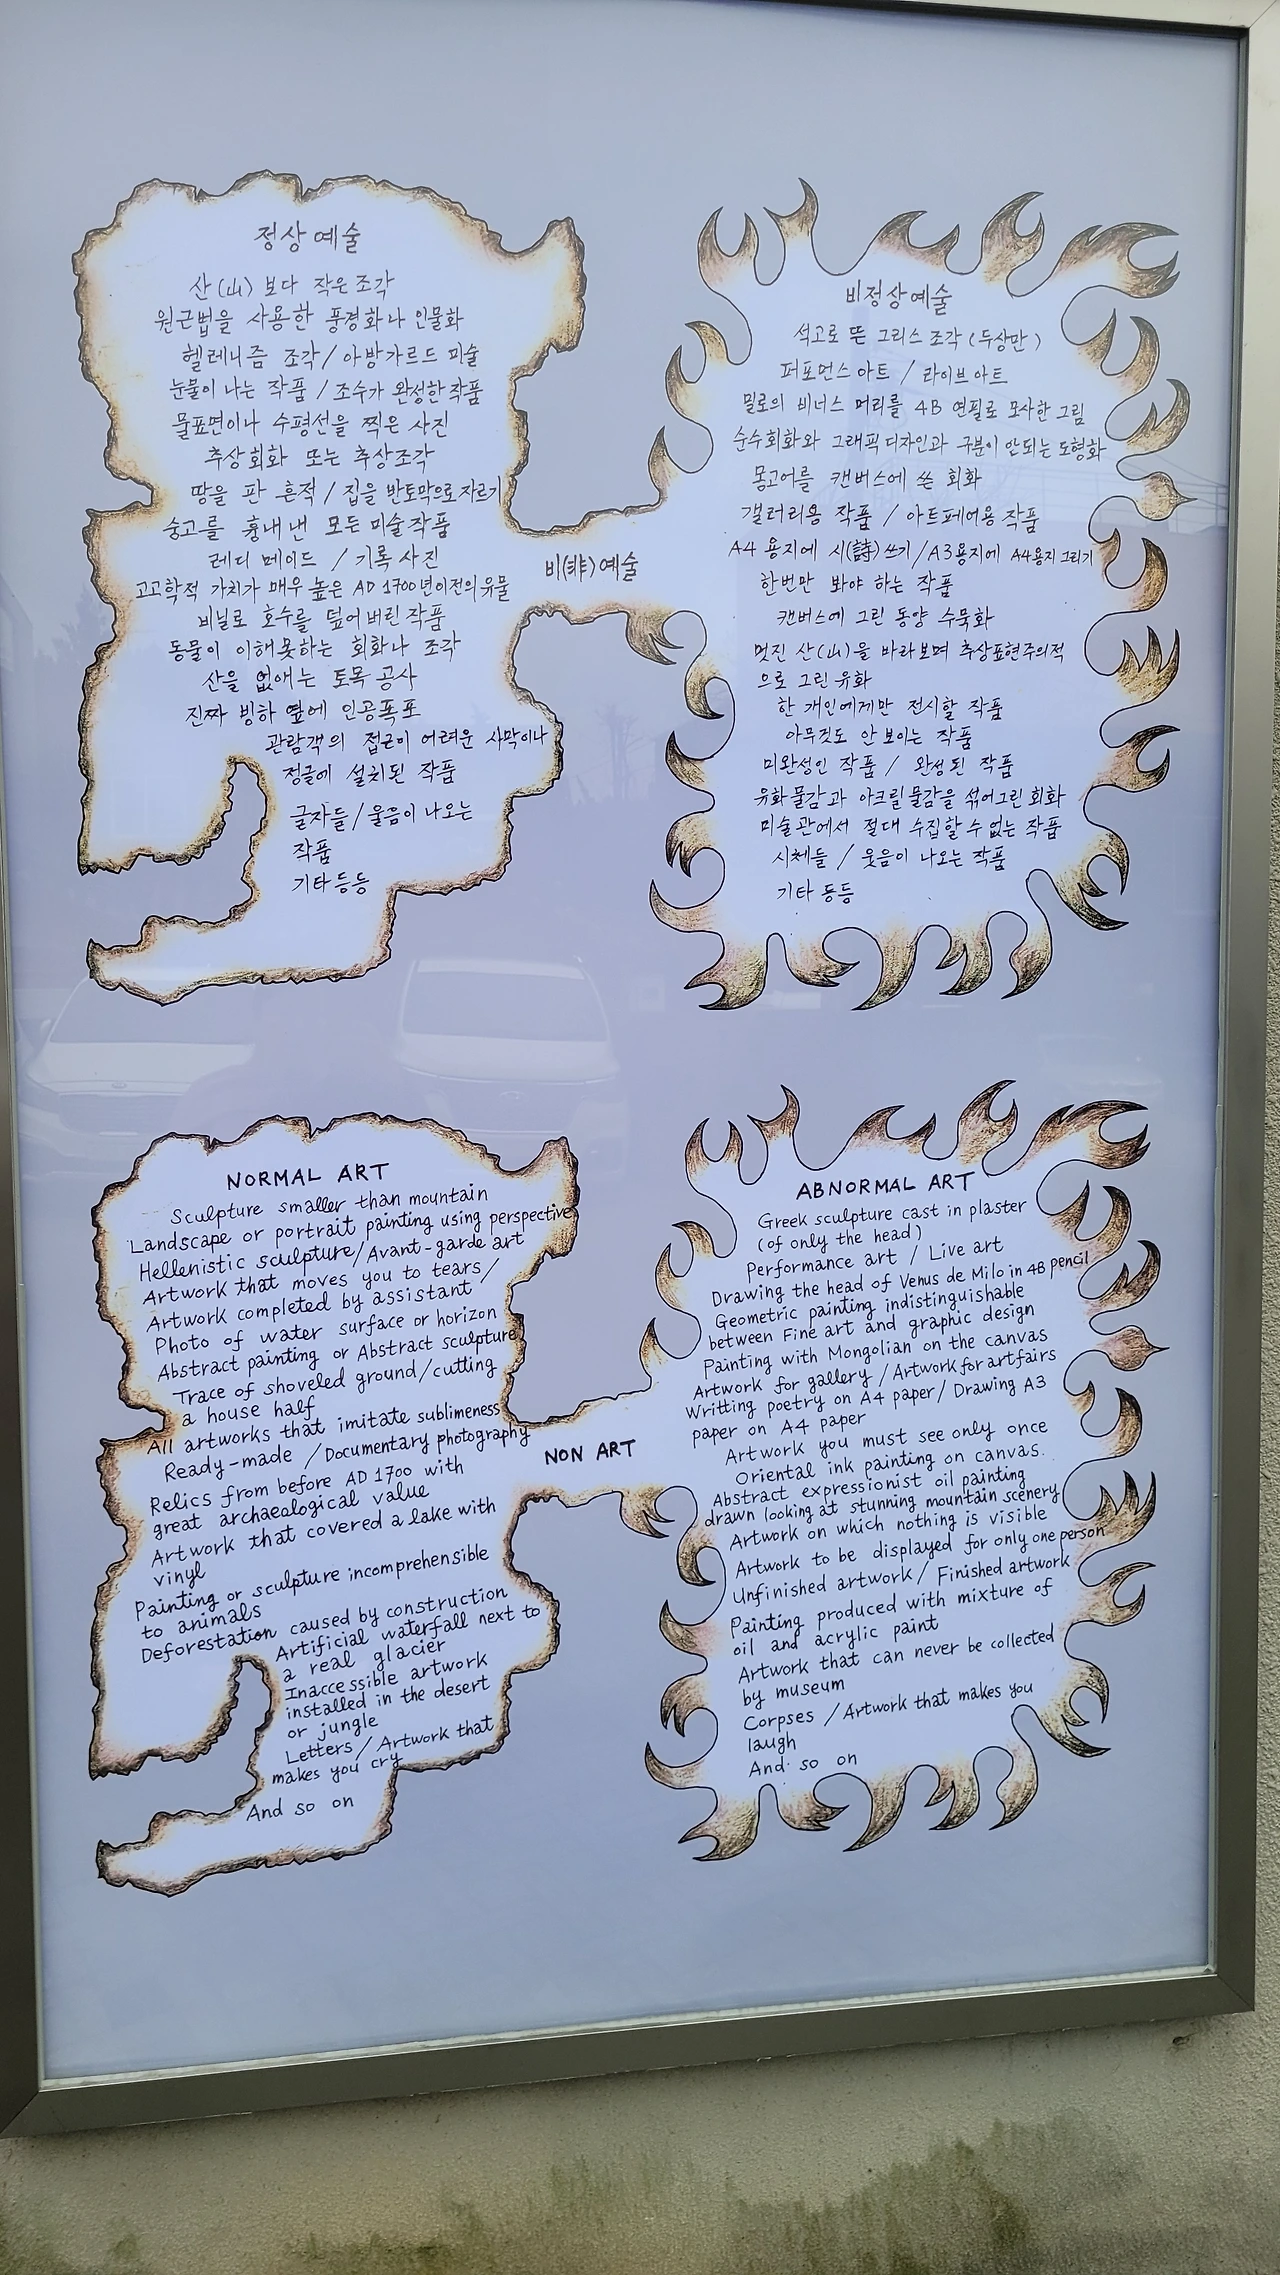 정상예술
산(山) 보다 작은 조각
원근법을 사용한 풍경화나 인물화
헬레니즘 조각/아방가르드 미술
눈물이 나는 작품 / 조수가 완성한 작품
물표면이나 수평선을 찍은 사진
추상회화 또는 추상조각
땅을 판 흔적 / 집을 반토막으로 자르기
숭고를 흉내낸 모든 미술작품
레디 메이드 / 기록 사진
고고학적 가치가 매우 높은 AD 1700년이전의 유물
비닐로 호수를 덮어버린 작품
동물이 이해못하는 회화나 조각
산을 없애는 토목 공사
진짜 빙하 옆에 인공폭포
관람객의 접근이 어려운 사막이나
정글에 설치된 작품
글자들/울음이 나오는
작품
기타등등
비(非)예술
비정상예술
석고로 뜬 그리스 조각 (두상만)
퍼포먼스 아트 / 라이브 아트
밀로의 비너스 머리를 4B 연필로 모사한 그림
순수회화와 그래픽디자인과 구분이 안되는 도형화
몽고어를 캔버스에 쓴 회화
갤러리용 작품 / 아트페어용 작품
A4 용지에 시(詩)쓰기/A3용지에 A4용지 그리기
한번만 봐야 하는 작품
캔버스에 그린 동양 수묵화
멋진 산(山)을 바라보며 추상표현주의적
으로 그린 유화
한 개인에게만 전시할 작품
아무것도 안 보이는 작품
미완성인 작품 / 완성된 작품
유화물감과 아크릴물감을 섞어그린 회화
미술관에서 절대 수집할 수 없는 작품
시체들 / 웃음이 나오는 작품
기타 등등
NORMAL ART
Sculpture smaller than mountain
Landscape or portrait painting using perspective
Hellenistic sculpture/Avant-garde art
Artwork that moves you to tears/
Artwork completed by assistant
Photo of water surface or horizon
Abstract painting or Abstract sculpture
Trace of shoveled ground/cutting
a house half
All artworks that imitate sublimeness
Ready-made /Documentary photography
Relics from before AD 1700 with
great archaeological value
Artwork that covered a lake with
vinyl
Painting or sculpture incomprehensible
to animals
Deforestation caused by construction
Artificial waterfall next to
a real glacier
Inaccessible artwork
installed in the desert
or jungle
Letters/Artwork that
makes you cry
And so on
NON ART
ABNORMAL ART
Greek sculpture cast in plaster
(of only the head)
Performance art / Live art
Drawing the head of Venus de Milo in 4B pencil
Geometric painting indistinguishable
between Fine art and graphic design
Painting with Mongolian on the canvas
Artwork for gallery /Artwork for artfairs
Writting poetry on A4 paper/ Drawing A3
paper on A4 paper
Artwork you must see only once
Oriental ink painting on canvas.
Abstract expressionist oil painting
drawn looking at stunning mountain scenery
Artwork on which nothing is visible
Artwork to be displayed for only one person
Unfinished artwork/ Finished artwork
Painting produced with mixture of
oil and acrylic paint
Artwork that can never be collected
by museum
Corpses /Artwork that makes you
laugh
And so on